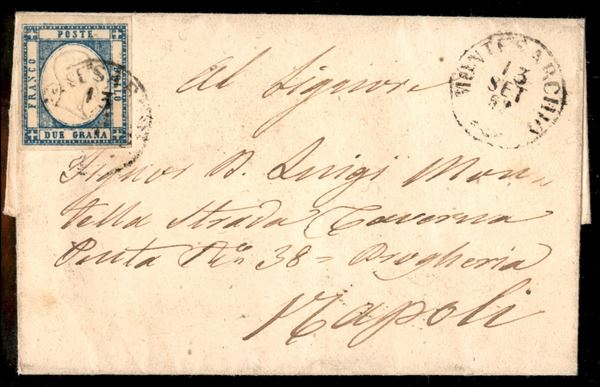 POSTE
FRANCO
BOLLO
DUE GRANA
13
MONTESARCHIO
13
SET
Al Signore
Signor D. Luigi
Nella Strada Taverna
Penta N.o 38 = Drogheria
Napoli